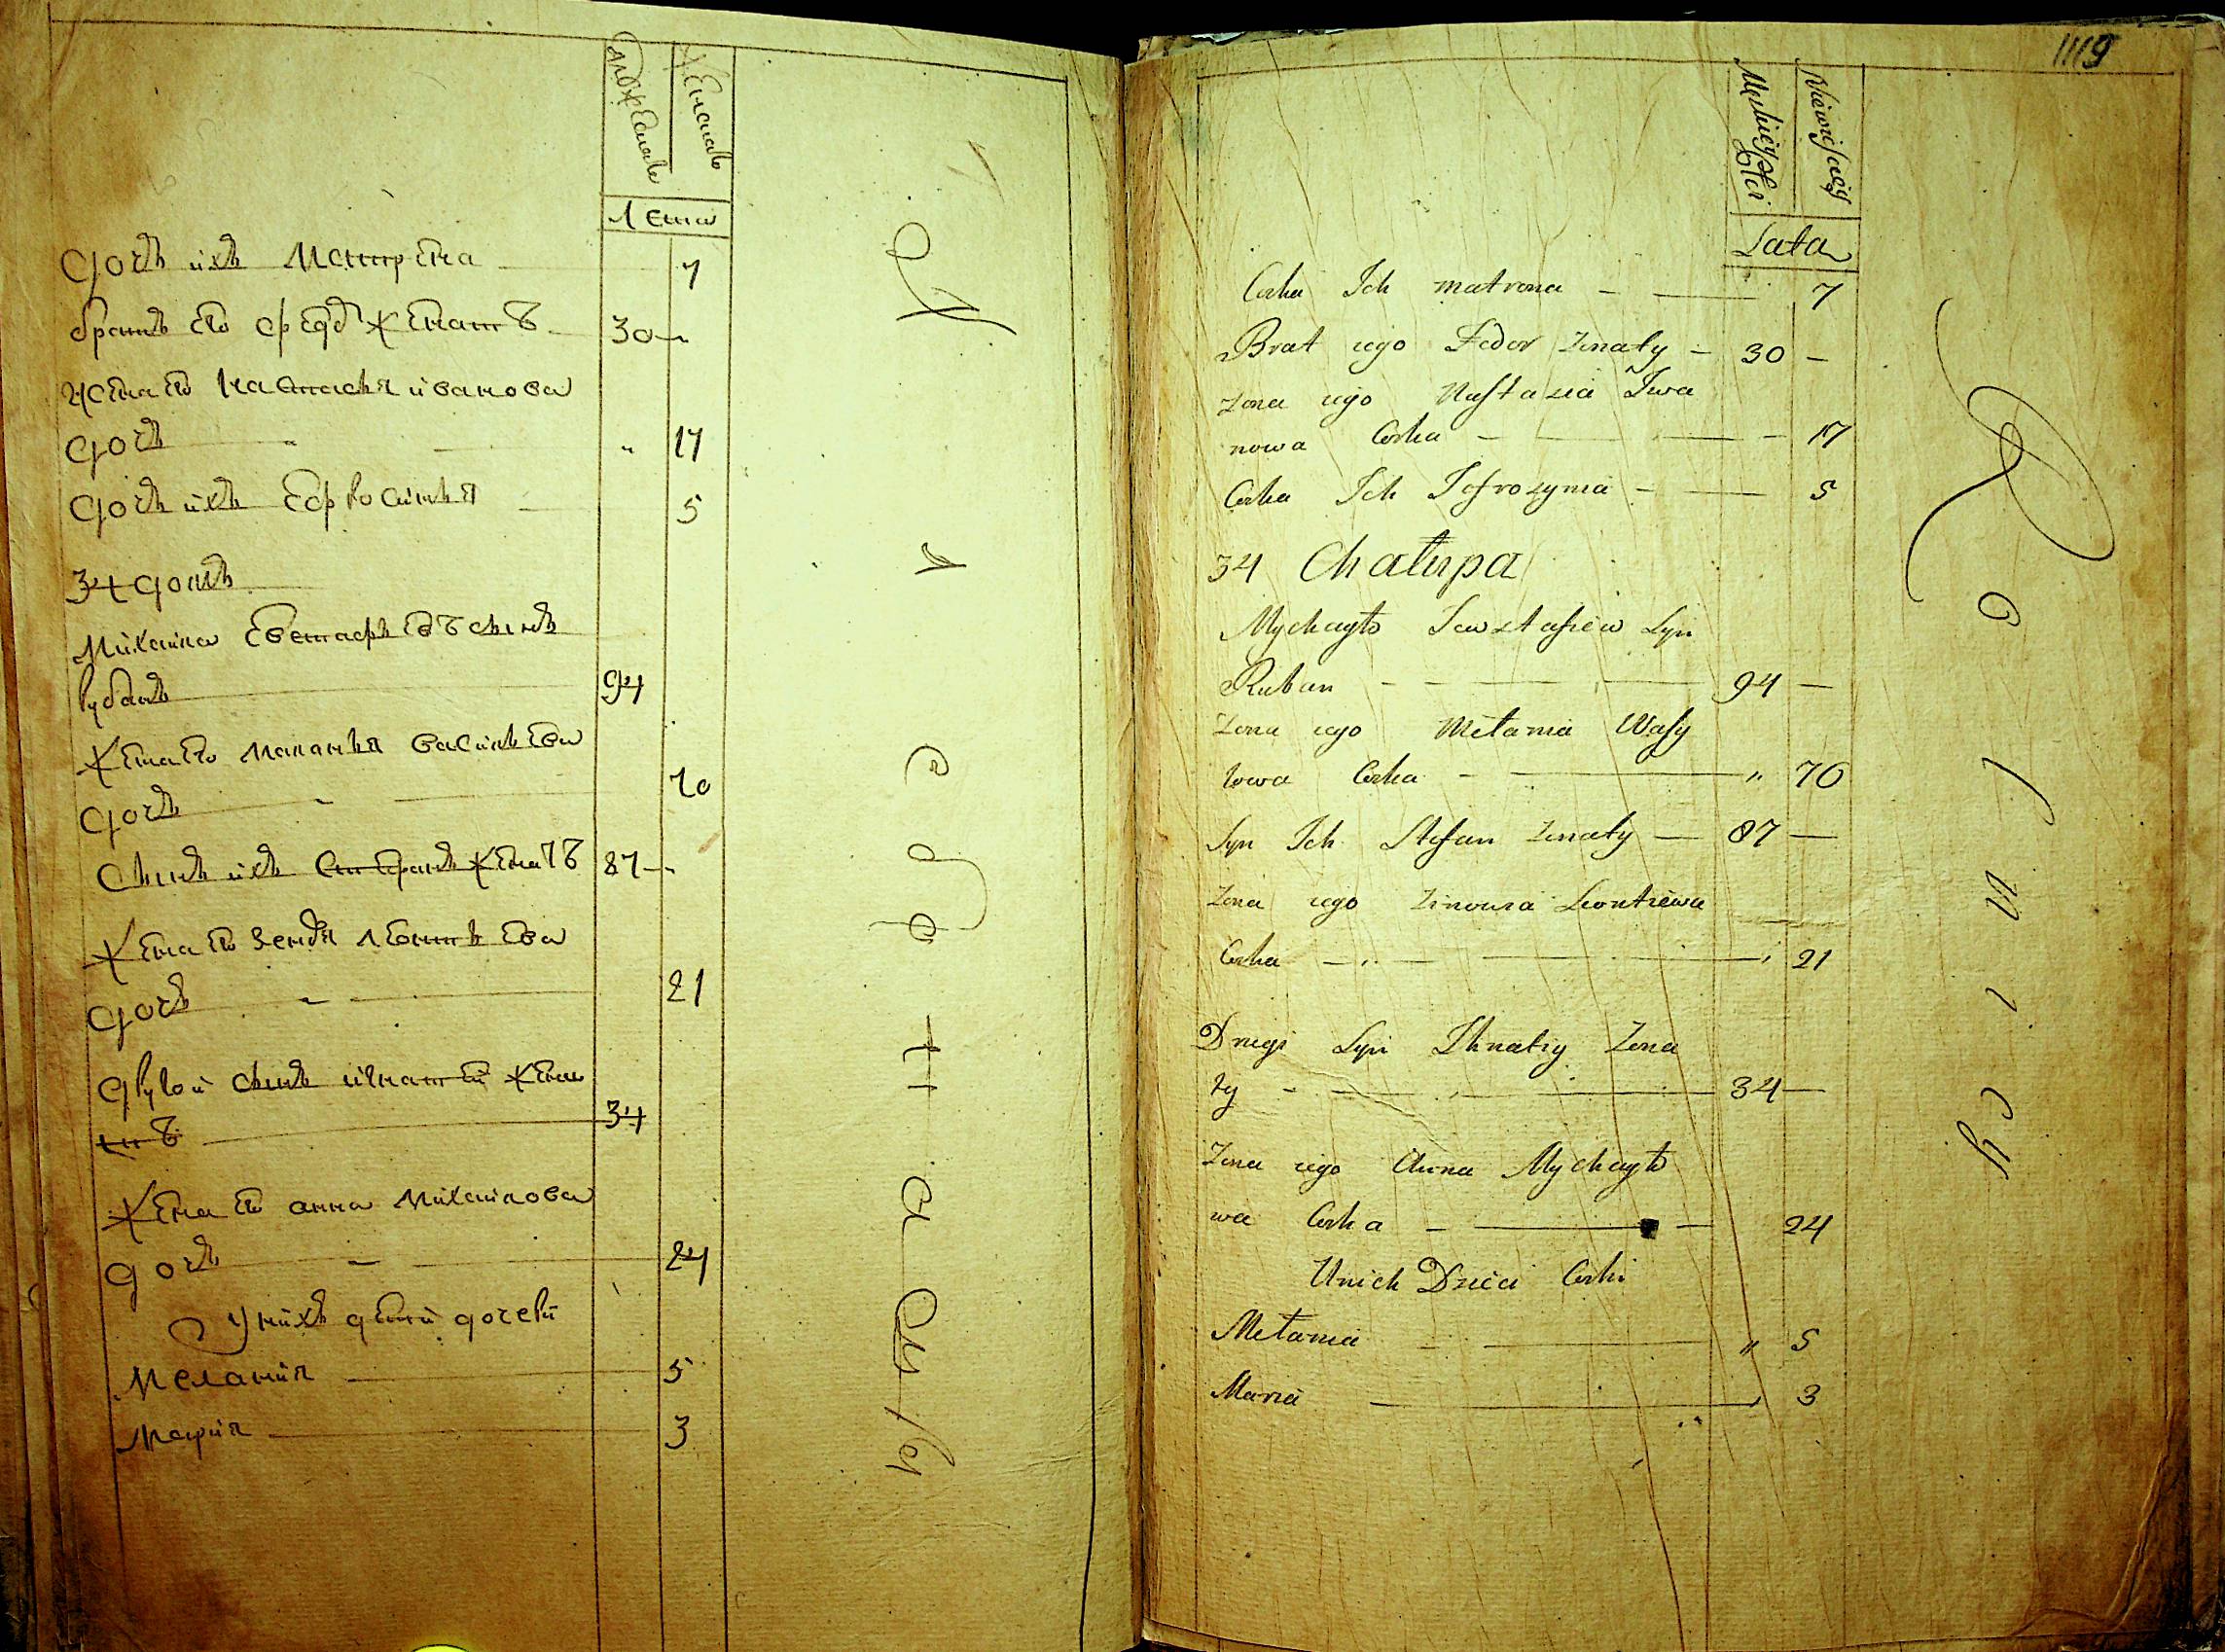 мужеска
женска
лета
дочь ихъ Матрена 7
братъ его Федоръ женатъ 30
жена его Настасья иванова
дочь 17
дочь ихъ Ефросинья 5
34 домъ
михаила Евстафьевъ сынъ
рубанъ 94
жена его маланья васильева
дочь 70
сынъ ихъ Степанъ женатъ 87
жена его зеновья леонтьева
дочь 21
другой сынъ игнатей жена
тъ 34
жена его анна михаилова
дочь 24
у нихъ дѣтей дочери
мелания 5
мария 3
1119
Męskiey Płci
Niewiesciey
Lata
Corka Ich matrona 7
Brat iego Fedor zonaty 30
zona iego Nastazia Iwa
nowa Corka 17
Corka Ich Iefrozynia 5
34 Chałupa
Mychayło Iewstafiew Syn
Ruban 94
Zona iego Mełania Wasy
lowa Corka 70
Syn Ich Stefan zonaty 87
Zona iego Zinowia Leontiewa
Corka 21
Drugi Syn Ihnatiy Zona
ty 34
Zona iego Anna Mychayło
wa Corka 24
U nich Dzieci Corki
Mełania 5
Maria 3
Rolnicy